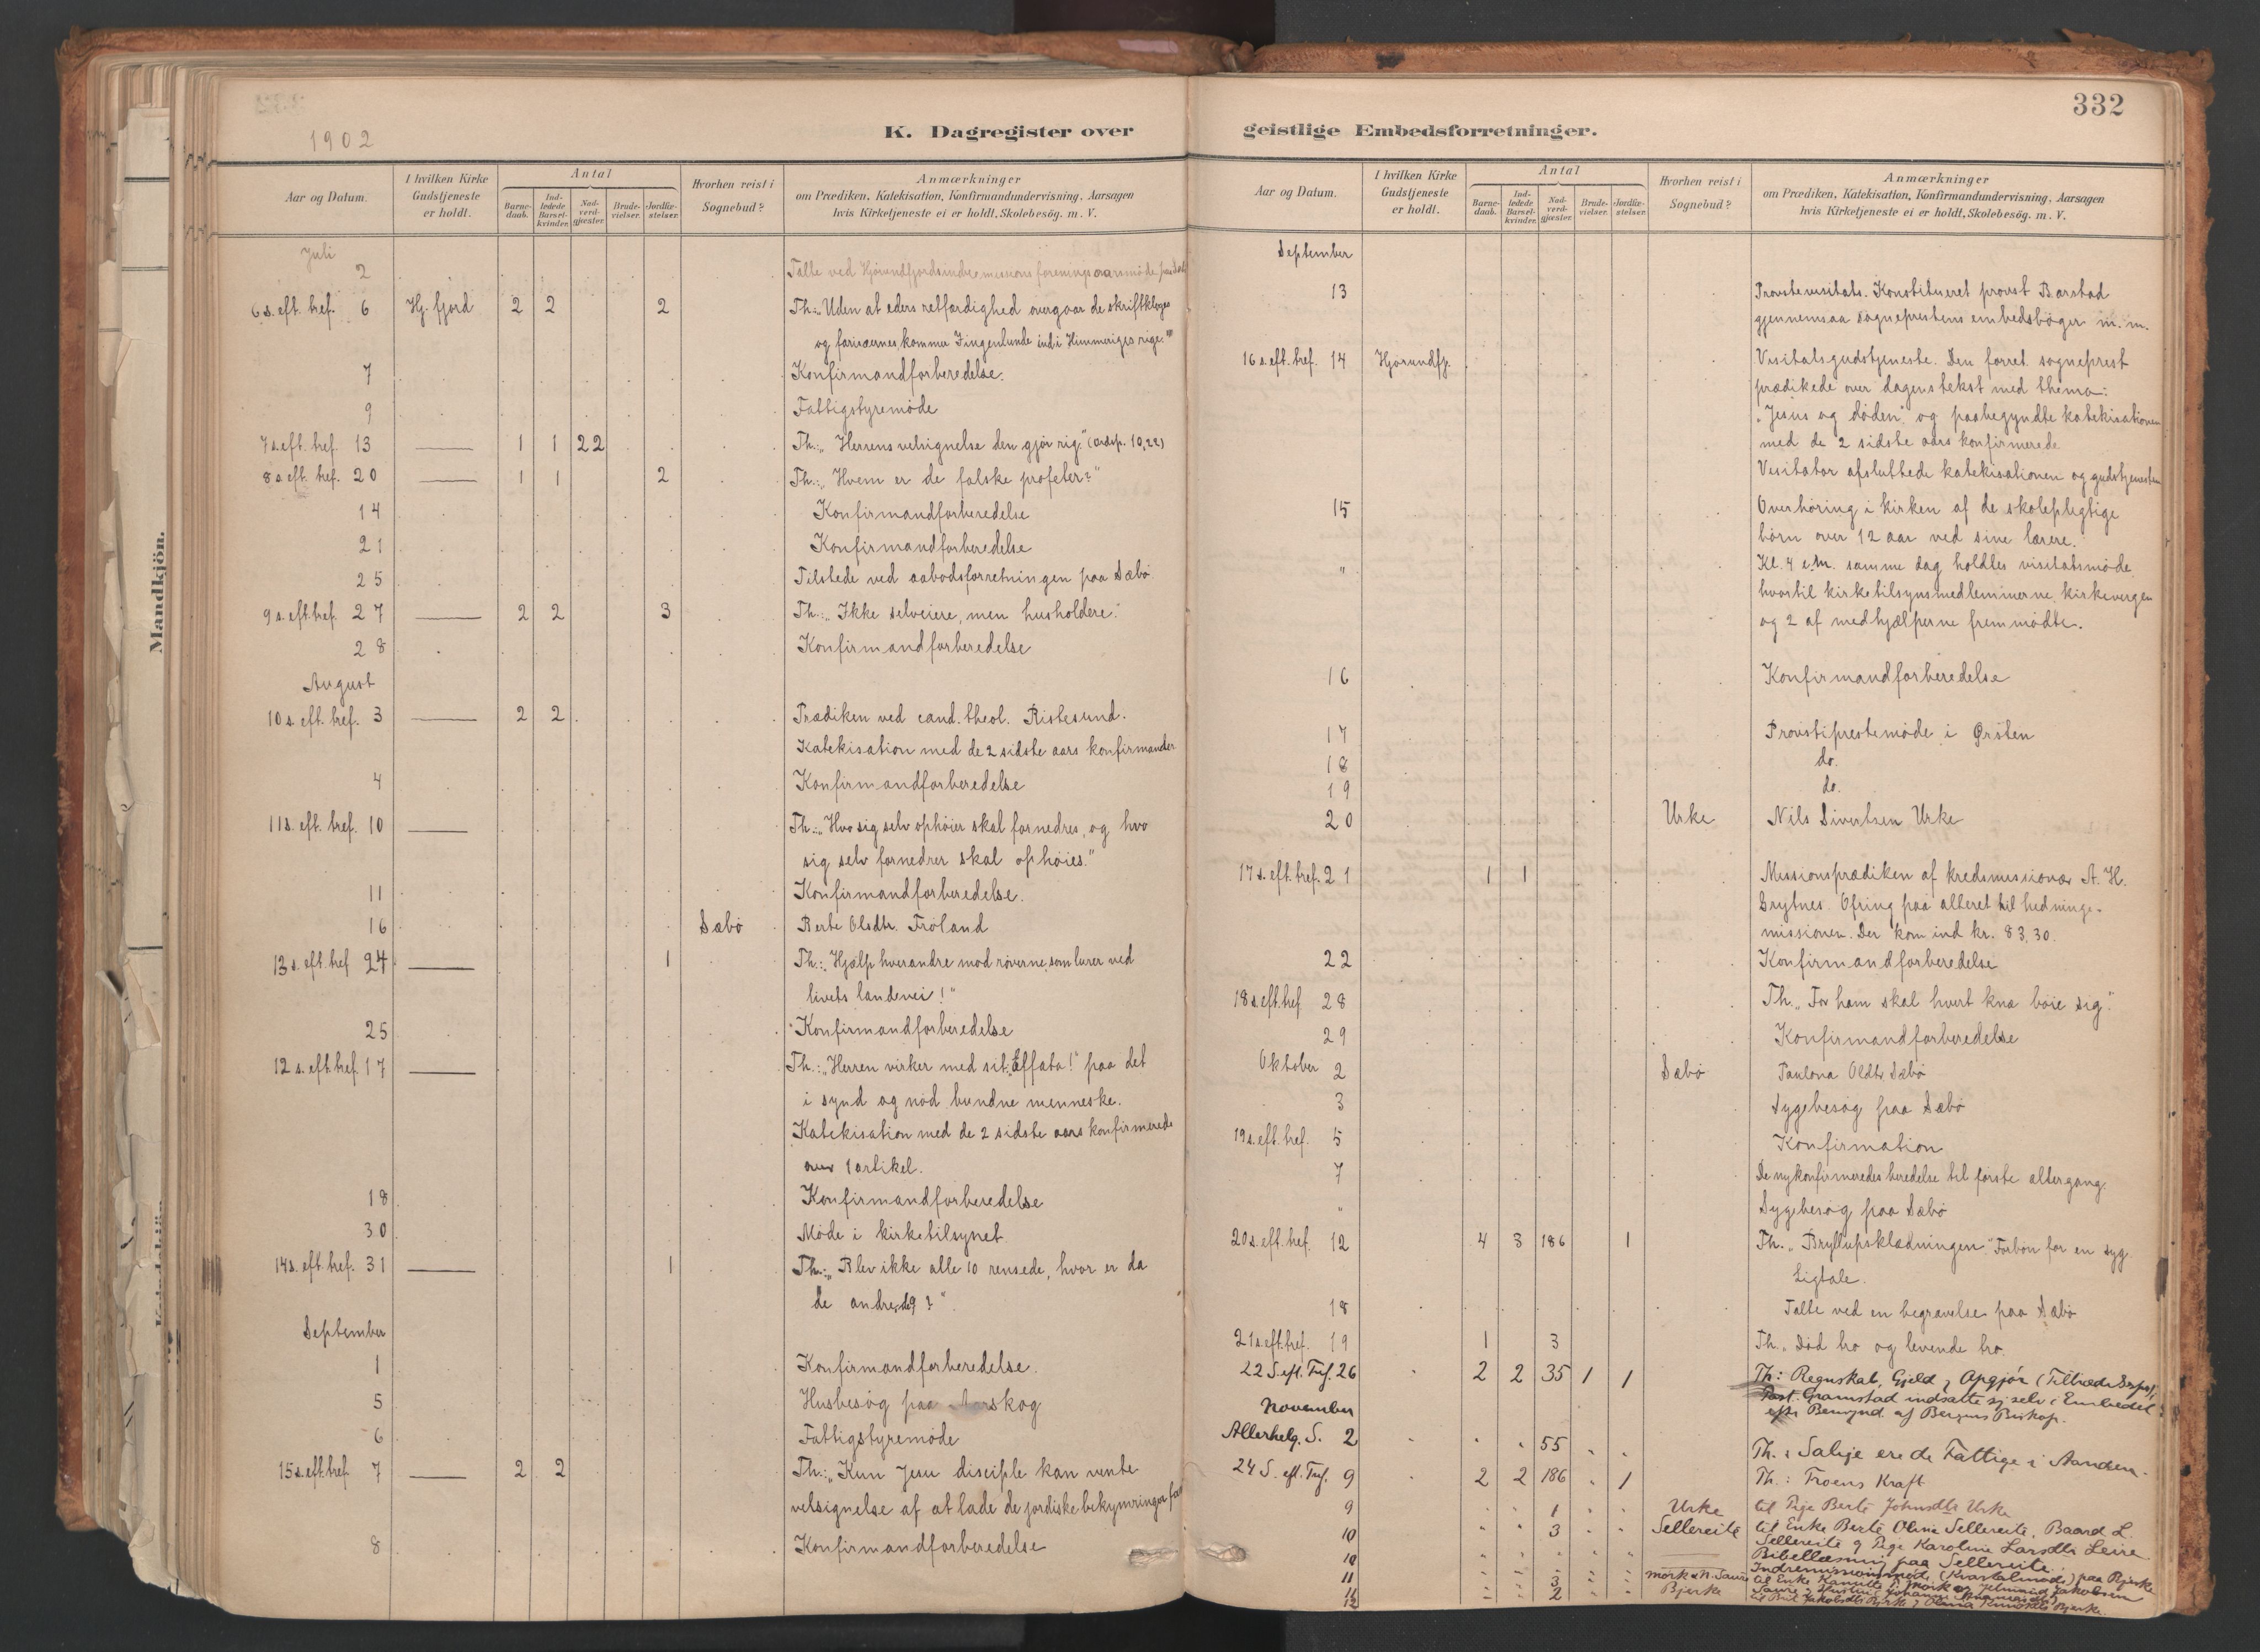 332
1902
K. Dagregister over
Aar og Datum.
I hvilken Kirke Gudstjeneste er holdt.
Antal
Barne-daab.
Ind-ledede Barsel-kvinder.
Nad-verd-gjæster.
Brude-vielser.
Jordfæ-stelser.
Hvorhen reist i Sognebud?
Anmærkninger
om Prædiken, Katekisation, Konfirmandundervisning, Aarsagen
hvis Kirketjeneste ei er holdt, Skolebesög. m. V.
Juli
2 Talte ved Hjørundfjords indremissions forenings aarsmøde
6 s. eft. tref. 6 Hj. fjord 2 2 2 Th.: „Uden at eders retfærdighed overgaar de skriftkloges
og farisæernes, kommer I ingenlunde ind i Himmeriges rige."
7 Konfirmandforberedelse.
9 Fattigstyremøde
7 s. eft. tref. 13 1 1 22 Th.: „Herrens velsignelse den gjør rig." (ordsp. 10,22)
8 s. eft. tref. 20 1 1 2 Th.: „Hvem er de falske profeter?"
14 Konfirmandforberedelse
21 Konfirmandforberedelse
25 Tilstede ved aabodsforretningen paa Sæbø.
9 s. eft. tref. 27 2 2 3 Th.: „Ikke selveiere, men husholdere."
28 Konfirmandforberedelse
August
10 s. eft. tref. 3 2 2 Prædiken ved cand. theol. Ristesund.
Katekisation med de 2 sidste aars konfirmander
4 Konfirmandforberedelse
11 s. eft. tref. 10 Th.: „Hvo sig selv ophøier skal fornedres, og hvo
sig selv fornedrer skal ophøies."
11 Konfirmandforberedelse.
16 Sæbø Berte Olsdtr. Frøland
13 s. eft. tref 24 1 Th.: „Hjælp hverandre mod røverne, som lurer ved
livets landevei!"
25 Konfirmandforberedelse
12 s. eft. tref. 17 Th.: „Herren virker med sit „Effata!" paa det
i synd og nød bundne menneske.
Katekisation med de 2 sidste aars konfirmerede
over 1 artikel.
18 Konfirmandforberedelse
30 Møde i kirketilsynet
14 s. eft. tref. 31 1 Th.: „Blev ikke alle 10 rensede, hvor er da
de andre 9?"
September
1 Konfirmandforberedelse.
5 Husbesøg paa
6 Fattigstyremøde
15 s. eft. tref 7 2 2 Th.: „Kun Jesu disciple kan vente
velsignelse af at lade de jordiske bekymringer
8 Konfirmandforberedelse
Mandkjön.
geistlige Embedsforretninger.
Aar og Datum.
I hvilken Kirke Gudstjeneste er holdt.
Antal
Barne-daab.
Ind-ledede Barsel-kvinder.
Nad-verd-gjæster.
Brude-vielser.
Jordfæ-stelser.
Hvorhen reist i Sognebud?
Anmærkninger
om Prædiken, Katekisation, Konfirmandundervisning, Aarsagen
hvis Kirketjeneste ei er holdt, Skolebesög. m. V.
September
13 Provstevisitats. Konstitueret provst Barstad
gjennemsaa sogneprestens embedsbøger m. m.
16 s. eft. tref. 14 Hjørundfj. Visitatsgudstjeneste. Den forret. sogneprest
prædikede over dagens tekst med thema:
„Jesus og døden" og paabegyndte katekisationen
med de 2 sidste aars konfirmerede
Visitator afsluttede katekisationen og gudstjenesten
15 Overhøring i kirken af de skolepligtige
børn over 12 aar ved sine lærere.
" Kl. 4 e.m. samme dag holdtes visitatsmøde
hvortil kirketilsynsmedlemmerne, kirkevergen
og 2 af medhjælperne fremmødte.
16 Konfirmandforberedelse
17 Provstiprestemøde i Ørsten
18 do.
19 do.
20 Urke Nils Sivertsen Urke
17 s. eft. tref. 21 1 1 Missionsprædiken af kredsmissionær A. H.
Brytnes. Ofring paa alteret til hedninge-
missionen. Der kom ind kr. 83,30.
22 Konfirmandforberedelse
18 s. eft. tref 28 Th. „For ham skal hvert knæ bøie sig."
29 Konfirmandforberedelse
Oktober 2 Sæbø Paulona Oldtr Sæbø
3 Sygebesøg paa Sæbø
19 s. eft. tref. 5 Konfirmation
7 De nykonfirmeredes beredelse til første altergang.
" Sygebesøg paa Sæbø
20 s. eft. tref. 12 4 3 186 1 Th. „Bryllupsklædningen." Forbøn for en syg
Ligtale.
18 Talte ved en begravelse paa Sæbø
21 s. eft. tref. 19 1 3 Th. „Død tro og levende tro.
22 S. eft. Tref. 26 2 2 35 1 1 Th: Regnskab, Gjeld, Opgjør
Gramstad indsatte sig selv i Embedet
efter Bemynd. af Bergens Biskop.
November
Allerhelg. S. 2 55 Th.: Salige ere de Fattige i Aanden.
24 S. eft. Tref. 9 2 2 186 1 Th.: Troens Kraft
9 1 Urke til Pige Berte Johnsdtr Urke
10 3 Sellereite til Enke Berte Oline Sellereite, Baard L.
Sellereite og Pige Karoline Larsdtr Leire
10 Bibellæsning paa Sellereite
11 Indremissionsmøde (Kvartalmøde) paa Bjerke
11 3 Mørk & N. Saure til Enke
12 2 Bjerke